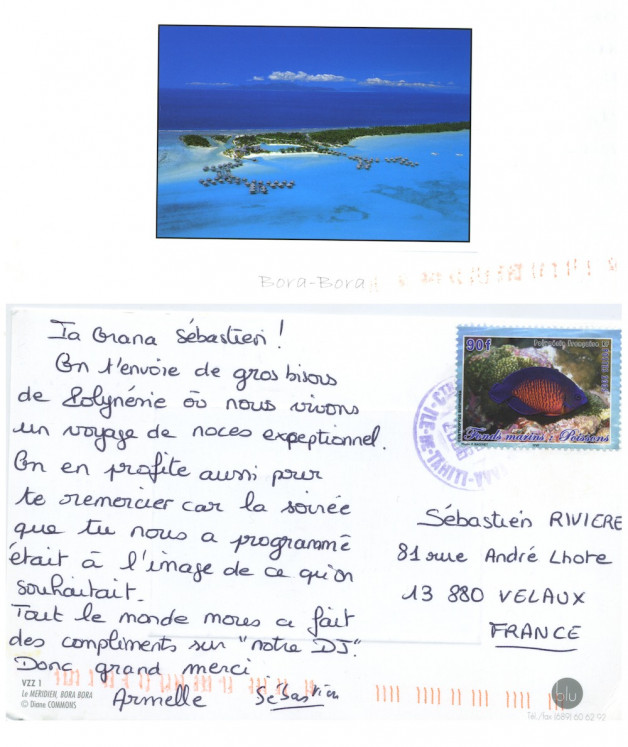 Bora-Bora
Ia Orana Sébastien !
On t'envoie de gros bisous
de Polynésie où nous vivons
un voyage de noces exceptionnel.
On en profite aussi pour
te remercier car la soirée
que tu nous a programmé
était à l'image de ce qu'on
souhaitait.
Tout le monde nous a fait
des compliments sur "notre DJ".
Donc grand merci
Armelle Sébastien
VZZ 1
Le MÉRIDIEN, BORA BORA
© Diane COMMONS
90f
Polynésie Française
Fonds marins : Poissons
Sébastien RIVIERE
81 rue André Lhote
13 880 VELAUX
FRANCE
blu
Tél./fax (689) 60 62 92